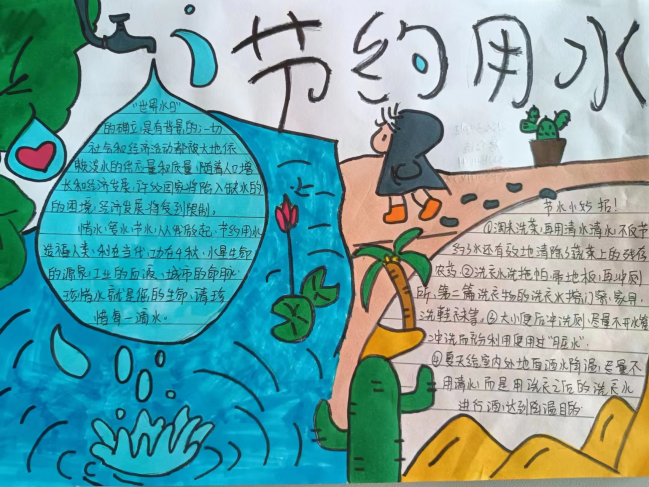 节约用水
"世界水日"
的确立,是有背景的,一切
社会和经济活动都极大地依
赖淡水的供应量和质量,随着人口增
长和经济发展,许多国家将陷入缺水的
的困境,经济发展将受到限制。
惜水、爱水、节水,从我做起,节约用水
造福人类,利在当代,功在千秋,水是生命
的源泉,工业的血液、城市的命脉。
珍惜水就是您的生命,请珍
惜每一滴水。
节水小妙招!
①淘米洗菜,再用清水清水,不仅节
约了水还有效地清除了蔬菜上的残存
农药,②洗衣水洗拖帕、帚地板,再冲厕
所,第二篇洗衣物的洗衣水擦门窗、家具、
洗鞋袜等。③大小便后冲洗厕,尽量不开水管
冲洗
④夏天给室内外地面洒水降温,尽量不
用清水,而是用洗衣之后的洗衣水
进行洒,达到降温目的